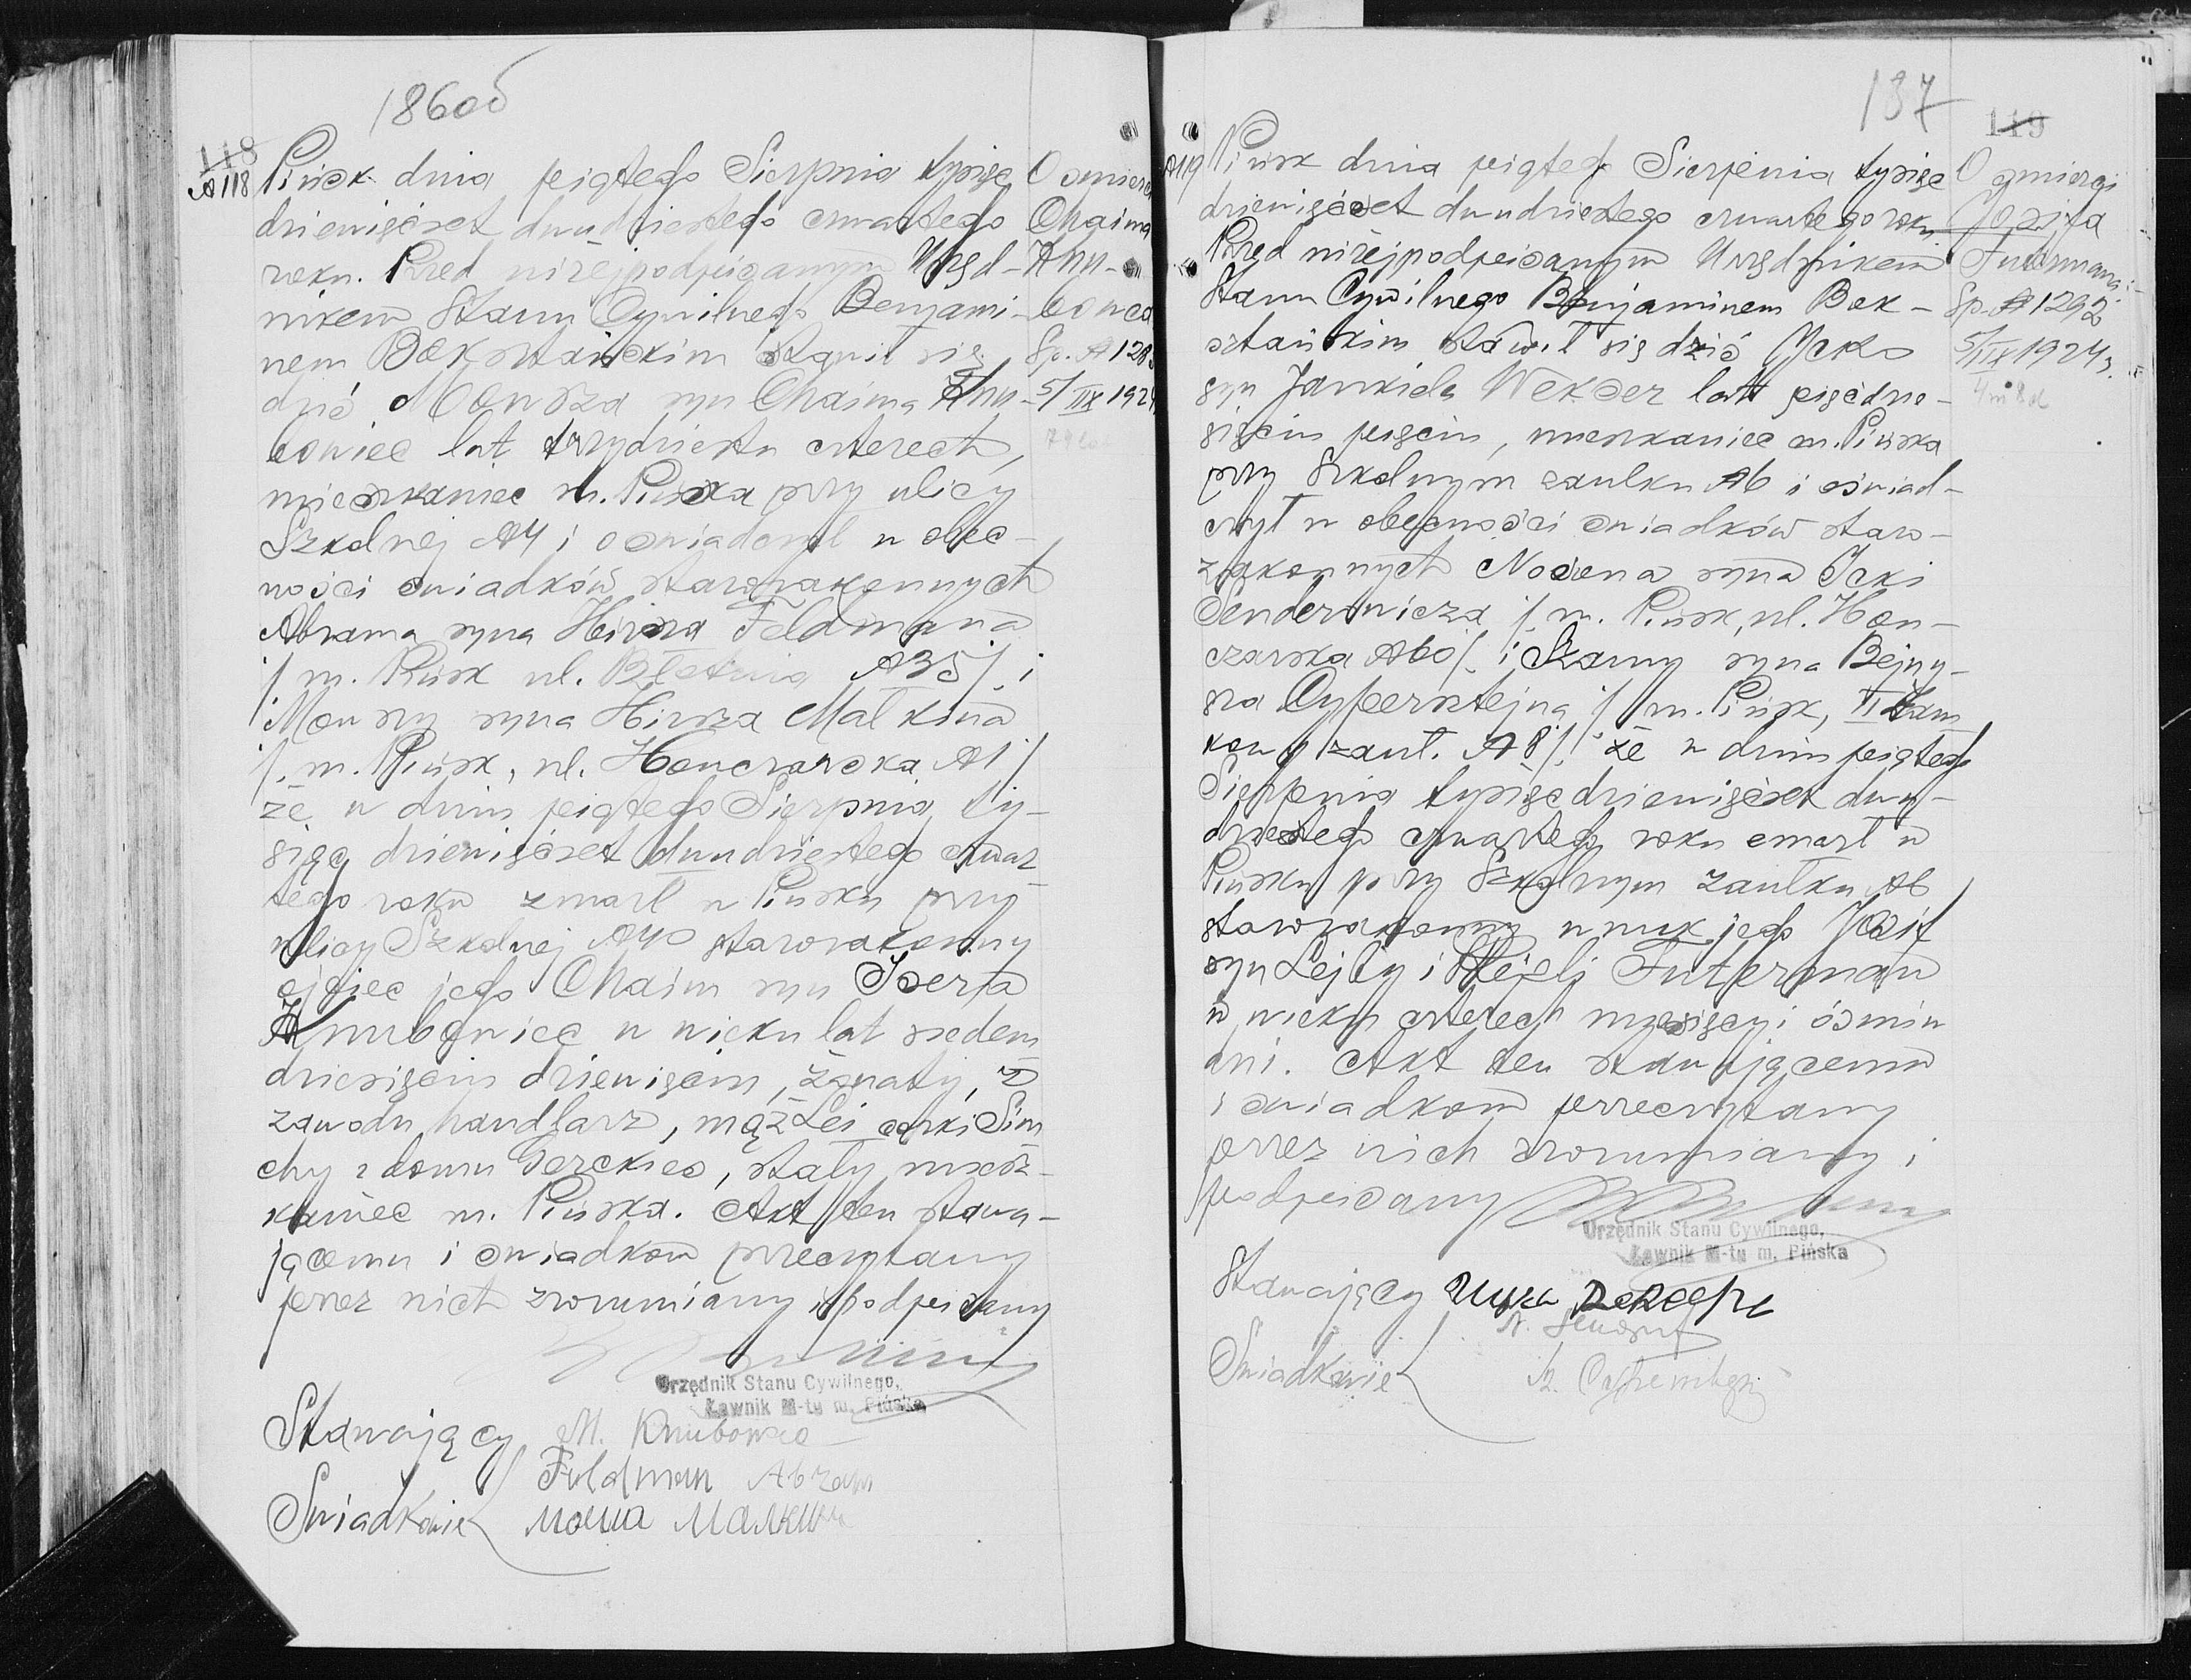 186 об
118
№ 118
Pińsk dnia piątego Sierpnia tysiąc
dziewięćset dwudziestego czwartego
roku. Przed niżejpodpisanym Urzęd-
nikem Stanu Cywilnego Benjami-
nem Boksztańskim stawił się
dziś Mowsza syn Chaima Knu-
bowiec lat trzydziestu czterech,
mieszkaniec m. Pińska przy ulicy
Szkolnej №4 i oświadczył w obec-
ności świadków starozakonnych
Abrama syna Hirsza Feldmana
/m. Pińsk ul. Błotnia №35/ i
Mowszy syna Hirsza Małkina
/m. Pińsk, ul. Honczarska №1/
że w dniu piątego Sierpnia ty-
siąc dziewięćset dwudziestego czwar
tego roku zmarł w Pińsku przy
ulicy Szkolnej №40 starozakonny
ojciec jego Chaim syn Iserta
Knubowiec w wieku lat siedem
dziesięciu dziewięciu, żonaty, z
zawodu handlarz, mąż Lei córki Sim
chy z domu Gerckies, stały miesz-
kaniec m. Pińska. Akt ten stawa-
jącemu i świadkom przeczytany
przez nich zrozumiany i podpisany
Urzędnik Stanu Cywilnego,
Ławnik M-tu m. Pińska
Stawający M. Knubowiec
Feldman Abram
Świadkowie Моша Малкин
O śmierci
Chaima
Knu-
bowca
Sp. № 128
5/IIX 1924
79 lat
137
119
№119
Pińsk dnia piątego Sierpnia tysiąc
dziewięćset dwudziestego czwartego roku
Przed niżejpodpisanym Urzędnikem
Stanu Cywilnego Benjaminem Bok-
sztańskim stawił się dziś Icko
syn Jankiela Wekser lat pięćdzie-
sięciu pięciu, mieszkaniec m. Pińska
przy Szkolnym zaułku №6 i oświad-
czył w obecności świadków staro-
zakonnych Nosona syna Icki
Senderowicza /m. Pińsk, ul. Hon-
czarska №60/ i Szamy syna Bejny-
sza Cypersztejna /m. Pińsk, VI Zam
kowy zauł. №8/ że w dniu piątego
Sierpnia tysiąc dziewięćset dwu-
dziestego czwartego roku zmarł w
Pińsku przy Szkolnym zaułku №6
starozakonny wnuk jego Josif
syn Lejby i Fejgli Futerman
w wieku czterech miesięcy i ośmiu
dni. Akt ten stawającemu
i świadkom przeczytany
przez nich zrozumiany i
podpisany
Urzędnik Stanu Cywilnego,
Ławnik M-tu m. Pińska
Stawający
Świadkowie
O śmierci
Josifa
Futermana
Sp. № 1292
5/IIX 1924 r.
4 m 8 d